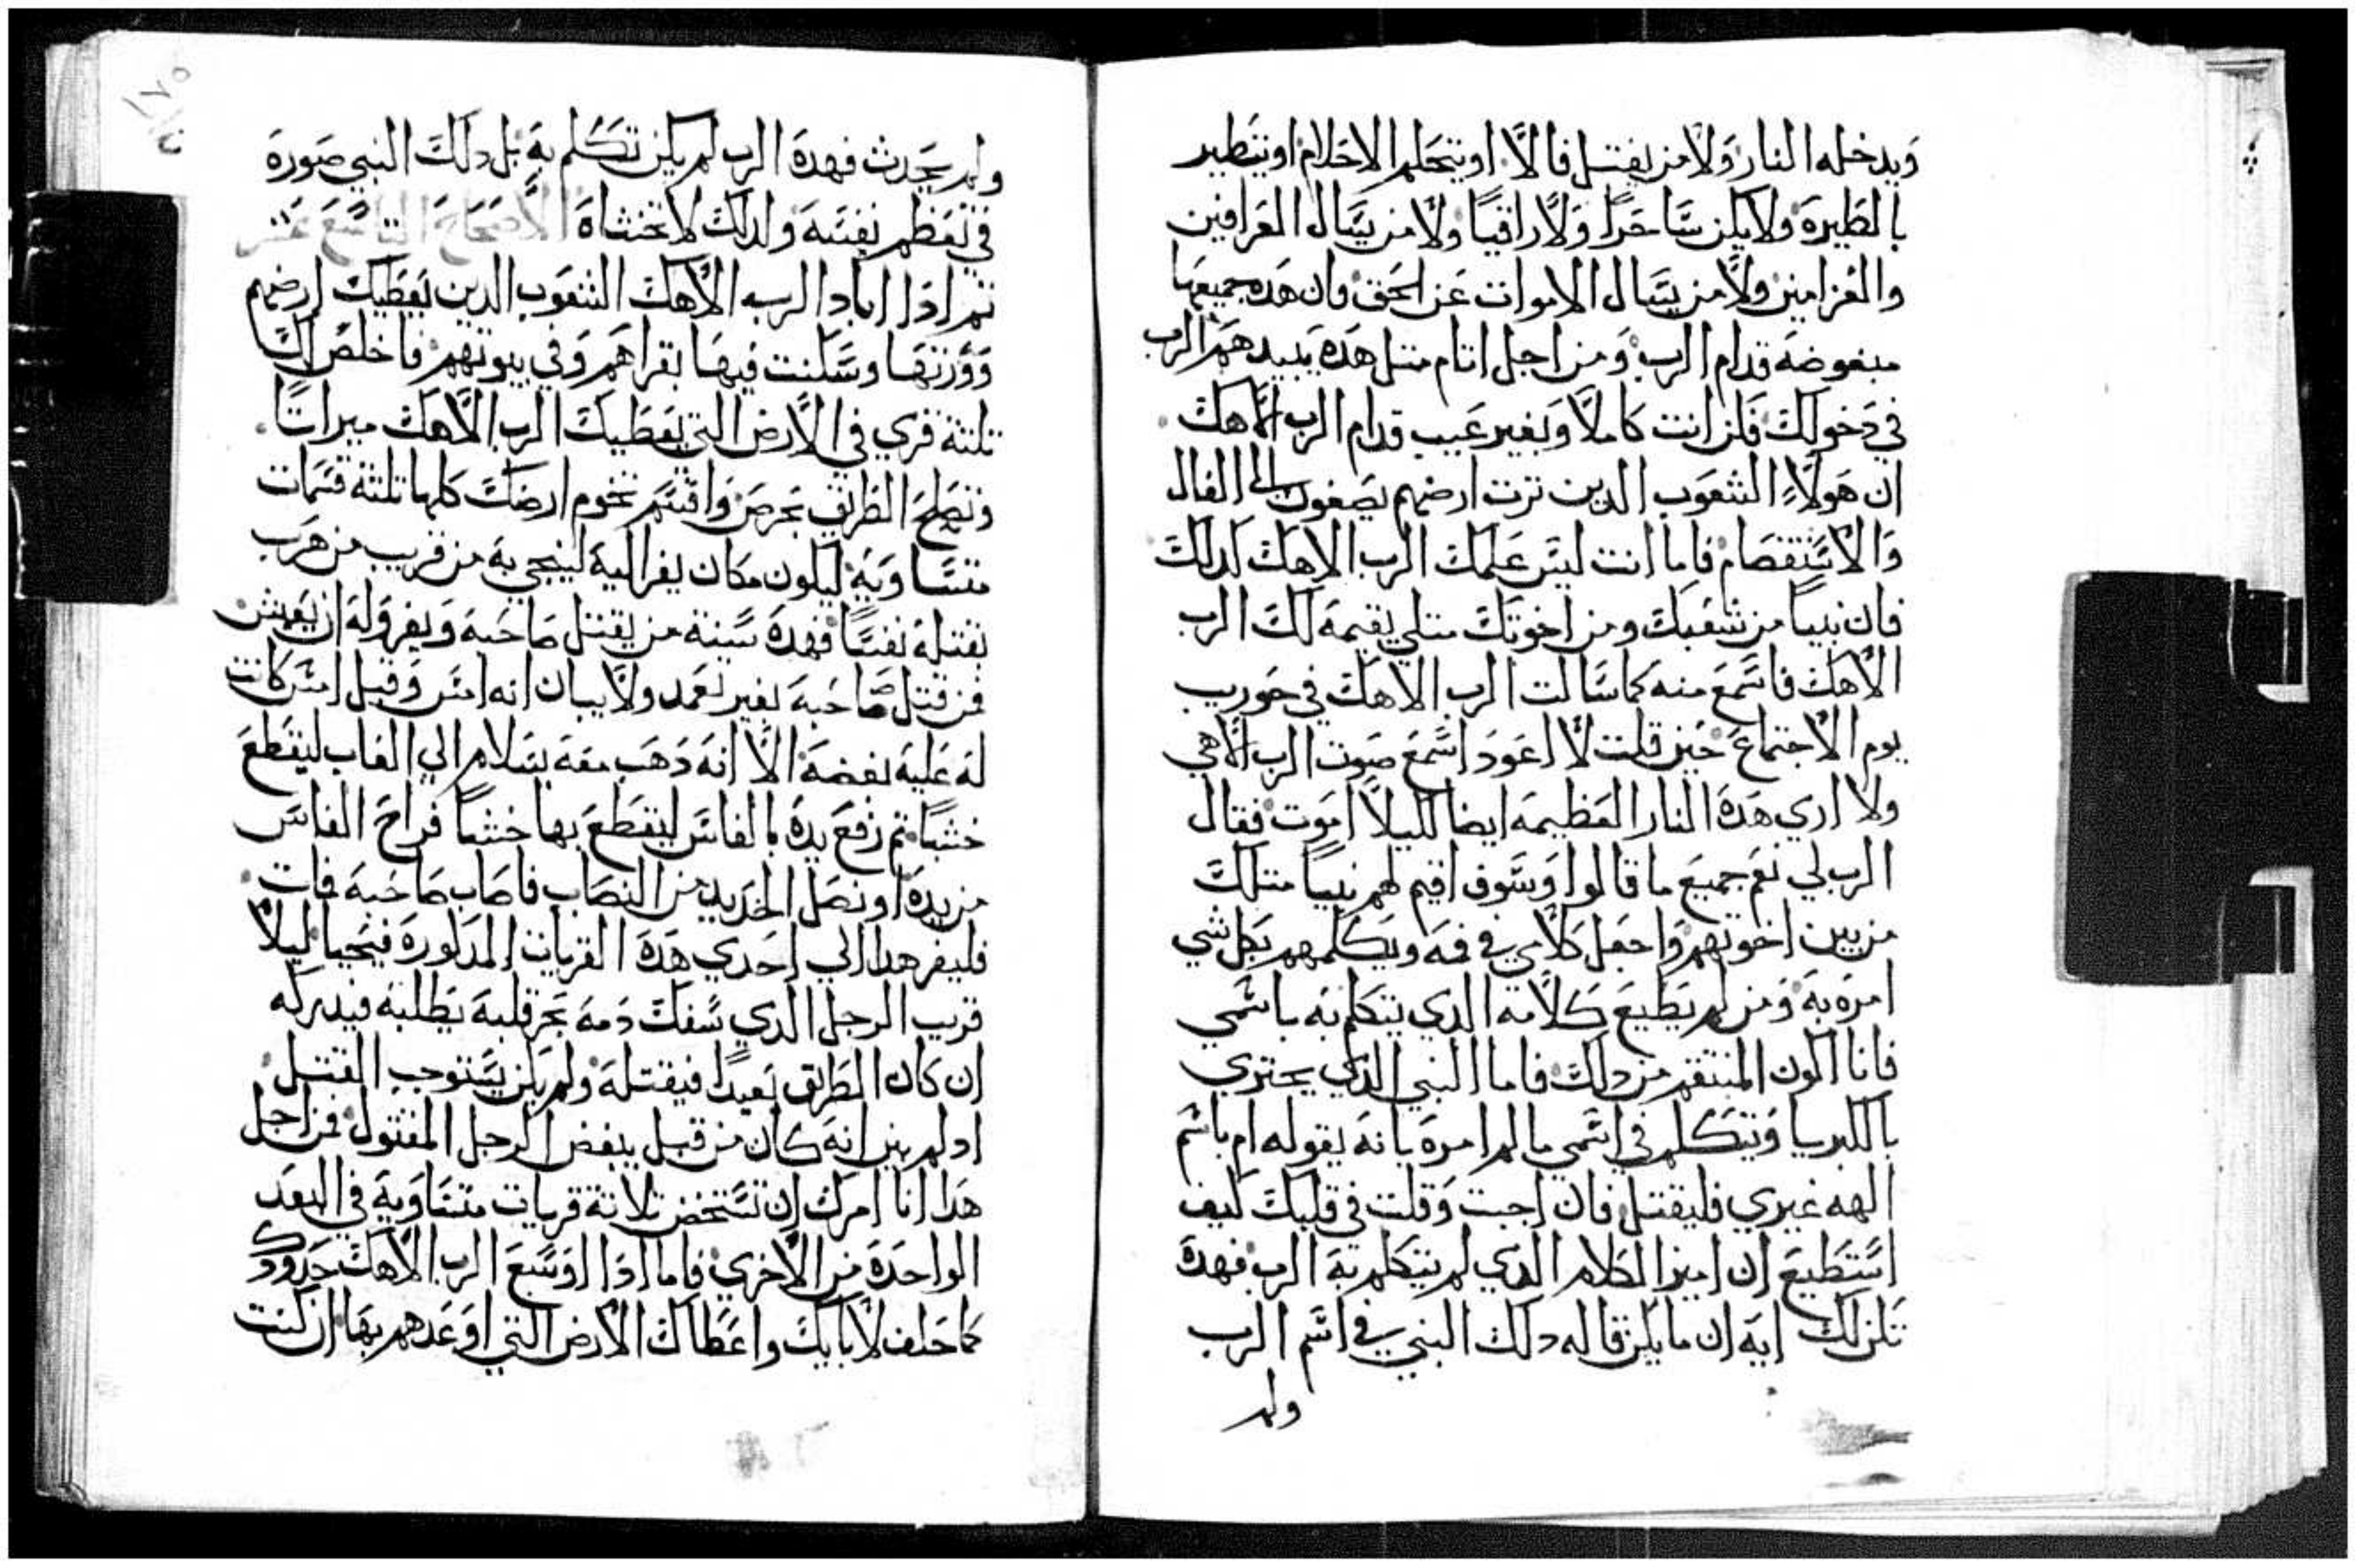 ويدخله النار ولا من يفتل فالا او يتحلم الاحلام او يتطير
بالطيره ولا يكن ساحرا ولا راقيا ولا من يسال العرافين
والعزامين ولا من يسال الاموات عن الحق فان هده جميعها
مبغوضه قدام الرب ومن اجل اتام متل هده يبيدهم الرب
في دخولك فكن انت كاملا وبغير عيب قدام الرب الاهك
ان هولاء الشعوب الدين ترت ارضهم يصغون الي الفال
والاستقصام فاما انت ليس علمك الرب الاهك كدلك
فان نبيا من شعبك ومن اخوتك متلي يقيمه لك الرب
الاهك فاسمع منه كما سالت الرب الاهك في حوريب
يوم الاجتماع حين قلت لا اعود اسمع صوت الرب الاهي
ولا اري هده النار العظيمه ايضا لكيلا اموت فقال
الرب لي نعم جميع ما قالوا وسوف اقيم لهم نبيا متلك
من بين اخوتهم واجعل كلامي في فمه ويكلمهم بكل شي
امره به ومن لم يطيع كلامه الدي يتكلم به باسمي
فانا اكون المنتقم من دلك فاما النبي الدي يجتري
بالكبريا ويتكلم في اسمي ما لم امره بانه يقوله ام باسم
الهه غيري فليقتل فان اجبت وقلت في قلبك كيف
استطيع ان اميز الكلام الدي لم يتكلم به الرب فهده
تكن لك ايه ان ما يكن قاله دلك النبي في اسم الرب
ولم
ولم يحدث فهده الرب لم يكن تكلم به بل دلك النبي صوره
في تعظم نفسه ولدلك لا تخشاه الاصحاح التاسع عشر
تم ادا اباد الرب الاهك الشعوب الدين يعطيك ارضهم
وورتها وسكنت فيها بقراهم وفي بيوتهم فاخلص لك
تلتة قري في الارض التي يعطيك الرب الاهك ميراتا
وتصلح الطريق بحرص واقسم تخوم ارضك كلها تلته قسمات
متساويه ليكون مكان يفر اليه لينجي به من قريب من هرب
بقتله نفسا فهده سنة من يقتل صاحبه ويفر وله ان يعيش
فمن قتل صاحبه بغير تعمد ولا يبان انه امس وقبل امس كانت
له عليه بغضه الا انه دهب معه بسلام الي الغاب ليقطع
خشبا تم رفع يده بالفاس ليقطع بها خشبا فراح الفاس
من يده او نصل الحديد من النصاب فاصاب صاحبه فمات
فليفر هدا الي احدي هده القريات المدكوره فيحيا ليلا
قريب الرجل الدي سفك دمه بحر قلبه يطلبه فيدركه
ان كان الطريق بعيدا فيقتله ولم يكن يستوجب القتل
اد لم يبن انه كان من قبل يبغض الرجل المقتول فمن اجل
هدا انا امرك ان تستخض تلاتة قريات متساويه في البعد
الواحده من الاخري فاما ادا اوسع الرب الاهك حدودك
كما حلف لابايك واعطاك الارض التي اوعدهم بها ان كنت